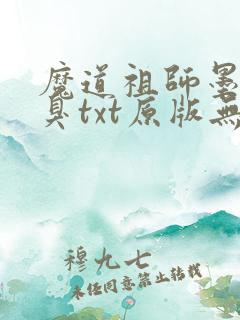 魔道祖師墨
臭txt原版無
穆九七
未任同意禁止转载